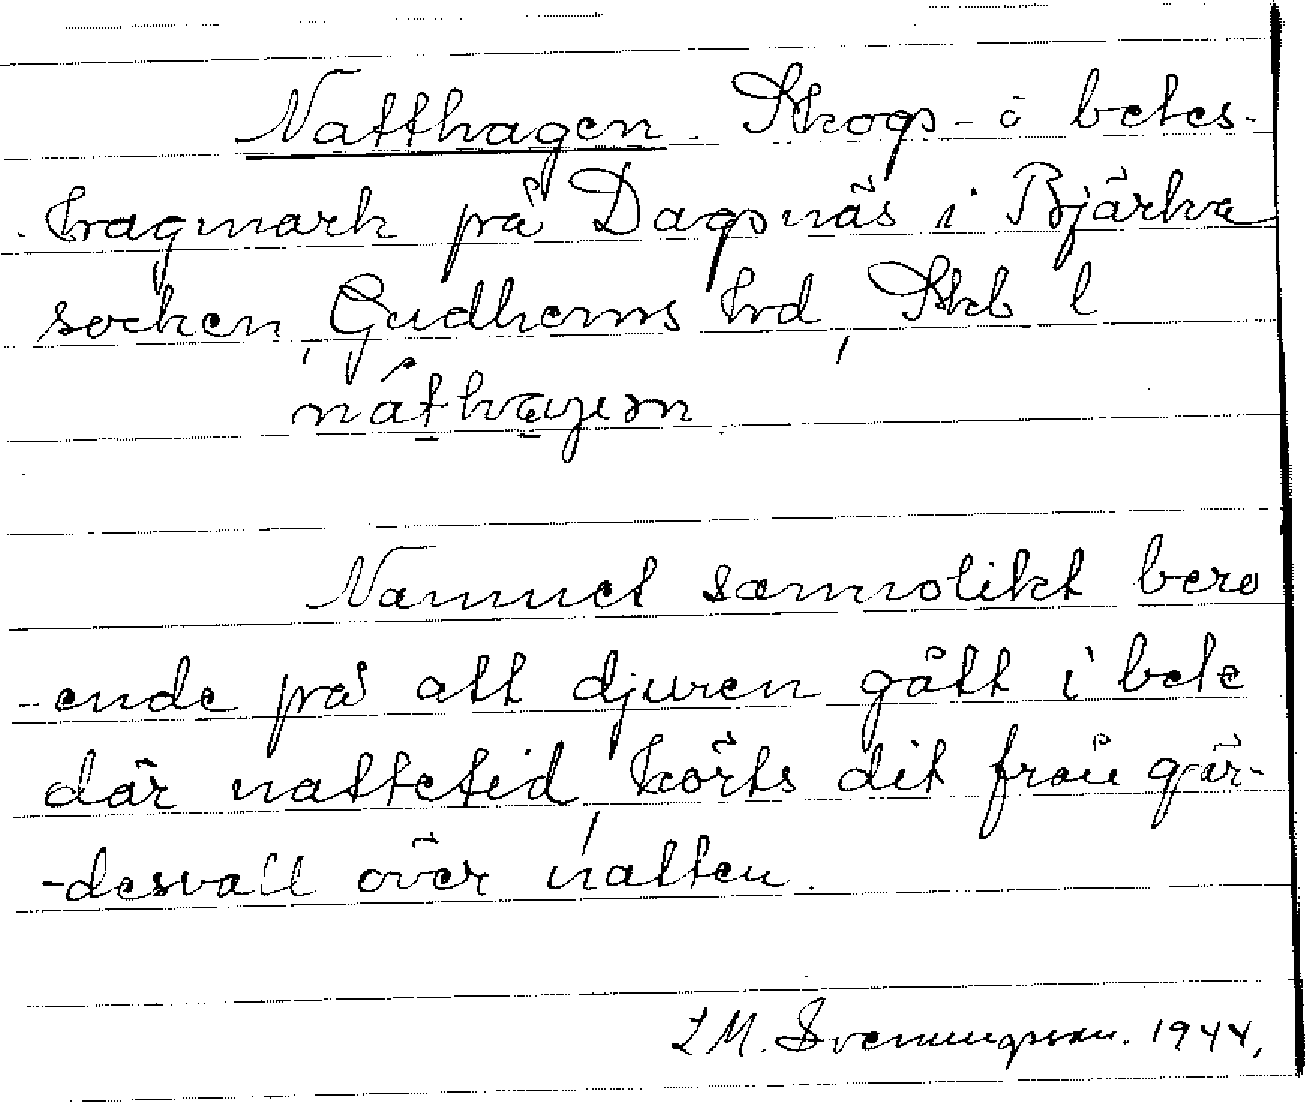 Natthagen. Skogs- o betes-
-hagmark på Dagsnäs i Bjärka
socken, Gudhems hrd, Skb l
náthagen
Namnet sannolikt bero
-ende på att djuren gått i bete
där nattetid, körts dit från gär-
-desvall över natten.
L M. Svenungsson. 1944,